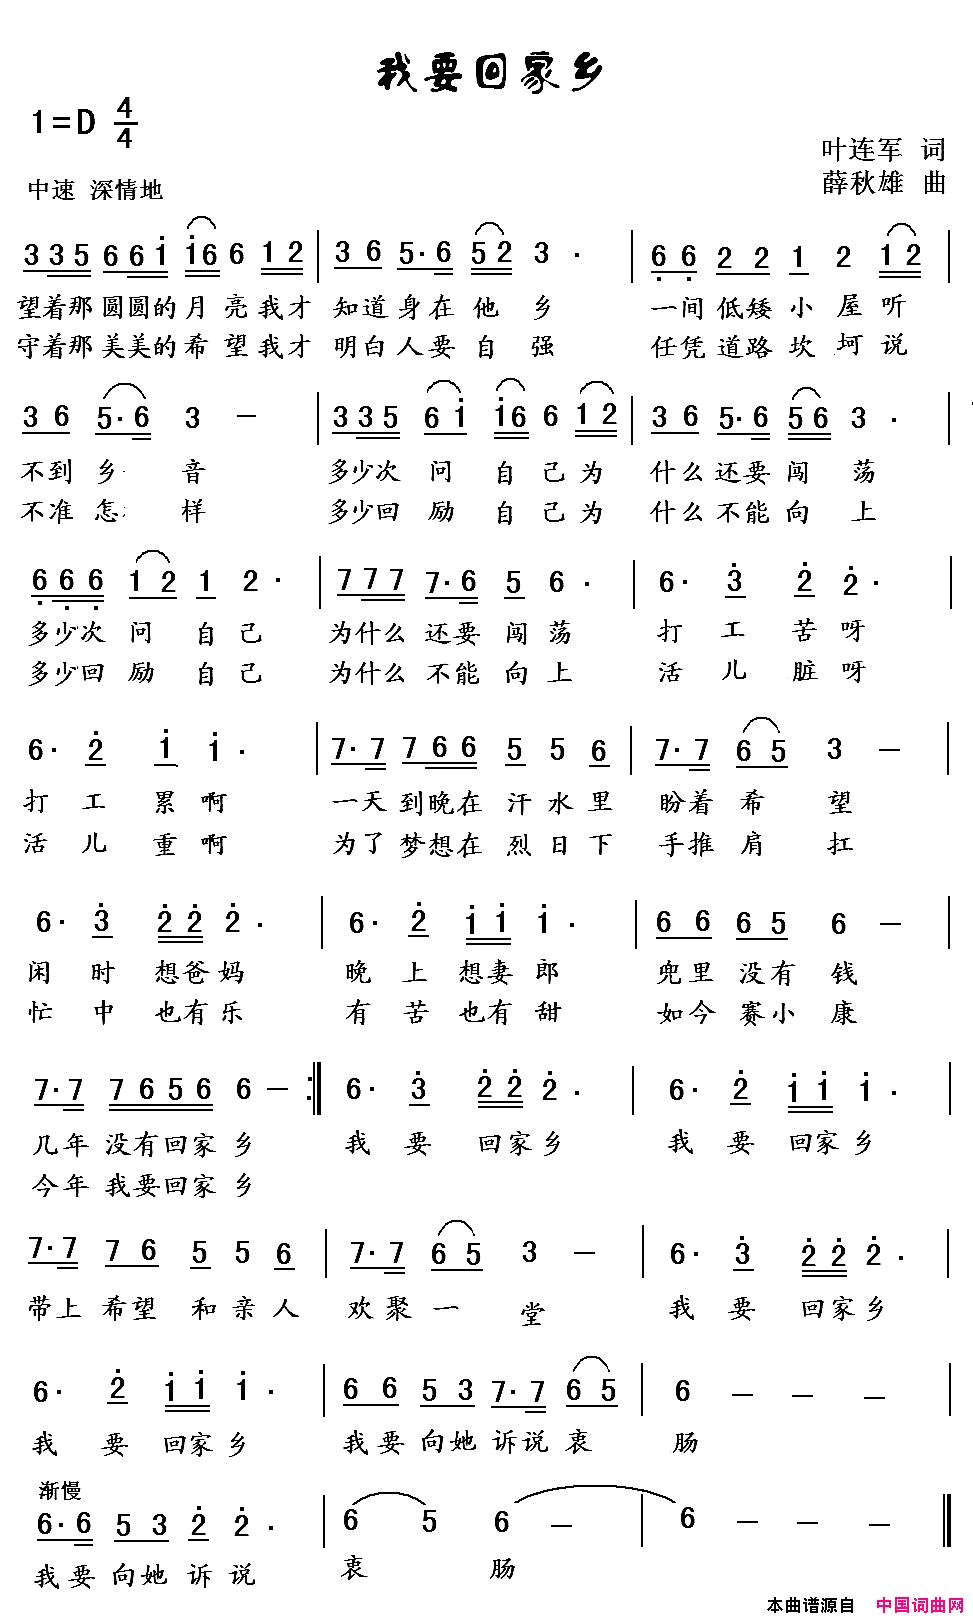 我要回家乡
1=D 4/4
叶连军 词
中速 深情地
薛秋雄 曲
3 3 5 6 6 i i 6 6 1 2 | 3 6 5· 6 5 2 3 · | 6 6 2 2 1 2 1 2 |
望着那圆圆的月亮我才 知道身在他乡 一间低矮小屋听
守着那美美的希望我才 明白人要自强 任凭道路坎坷说
3 6 5· 6 3 — | 3 3 5 6 i i 6 6 1 2 | 3 6 5· 6 5 6 3 · |
不到乡音 多少次问自己为 什么还要闯荡
不准怎样 多少回励自己为 什么不能向上
6 6 6 1 2 1 2 · | 7 7 7 7· 6 5 6 · | 6· 3 2 2 · |
多少次问自己 为什么还要闯荡 打工苦呀
多少回励自己 为什么不能向上 活儿脏呀
6· 2 i i · | 7· 7 7 6 6 5 5 6 | 7· 7 6 5 3 — |
打工累啊 一天到晚在汗水里 盼着希望
活儿重啊 为了梦想在烈日下 手推肩扛
6· 3 2 2 2 · | 6· 2 i i i · | 6 6 6 5 6 — |
闲时想爸妈 晚上想妻郎 兜里没有钱
忙中也有乐 有苦也有甜 如今赛小康
7· 7 7 6 5 6 6 — :‖ 6· 3 2 2 2 · | 6· 2 i i i · |
几年没有回家乡 我要回家乡 我要回家乡
今年我要回家乡
7· 7 7 6 5 5 6 | 7· 7 6 5 3 — | 6· 3 2 2 2 · |
带上希望和亲人 欢聚一堂 我要回家乡
6· 2 i i i · | 6 6 5 3 7· 7 6 5 | 6 — — — |
我要回家乡 我要向她诉说衷 肠
渐慢
6· 6 5 3 2 2 · | 6 5 6 — | 6 — — — ‖
我要向她诉说 衷肠
本曲谱源自 中国词曲网